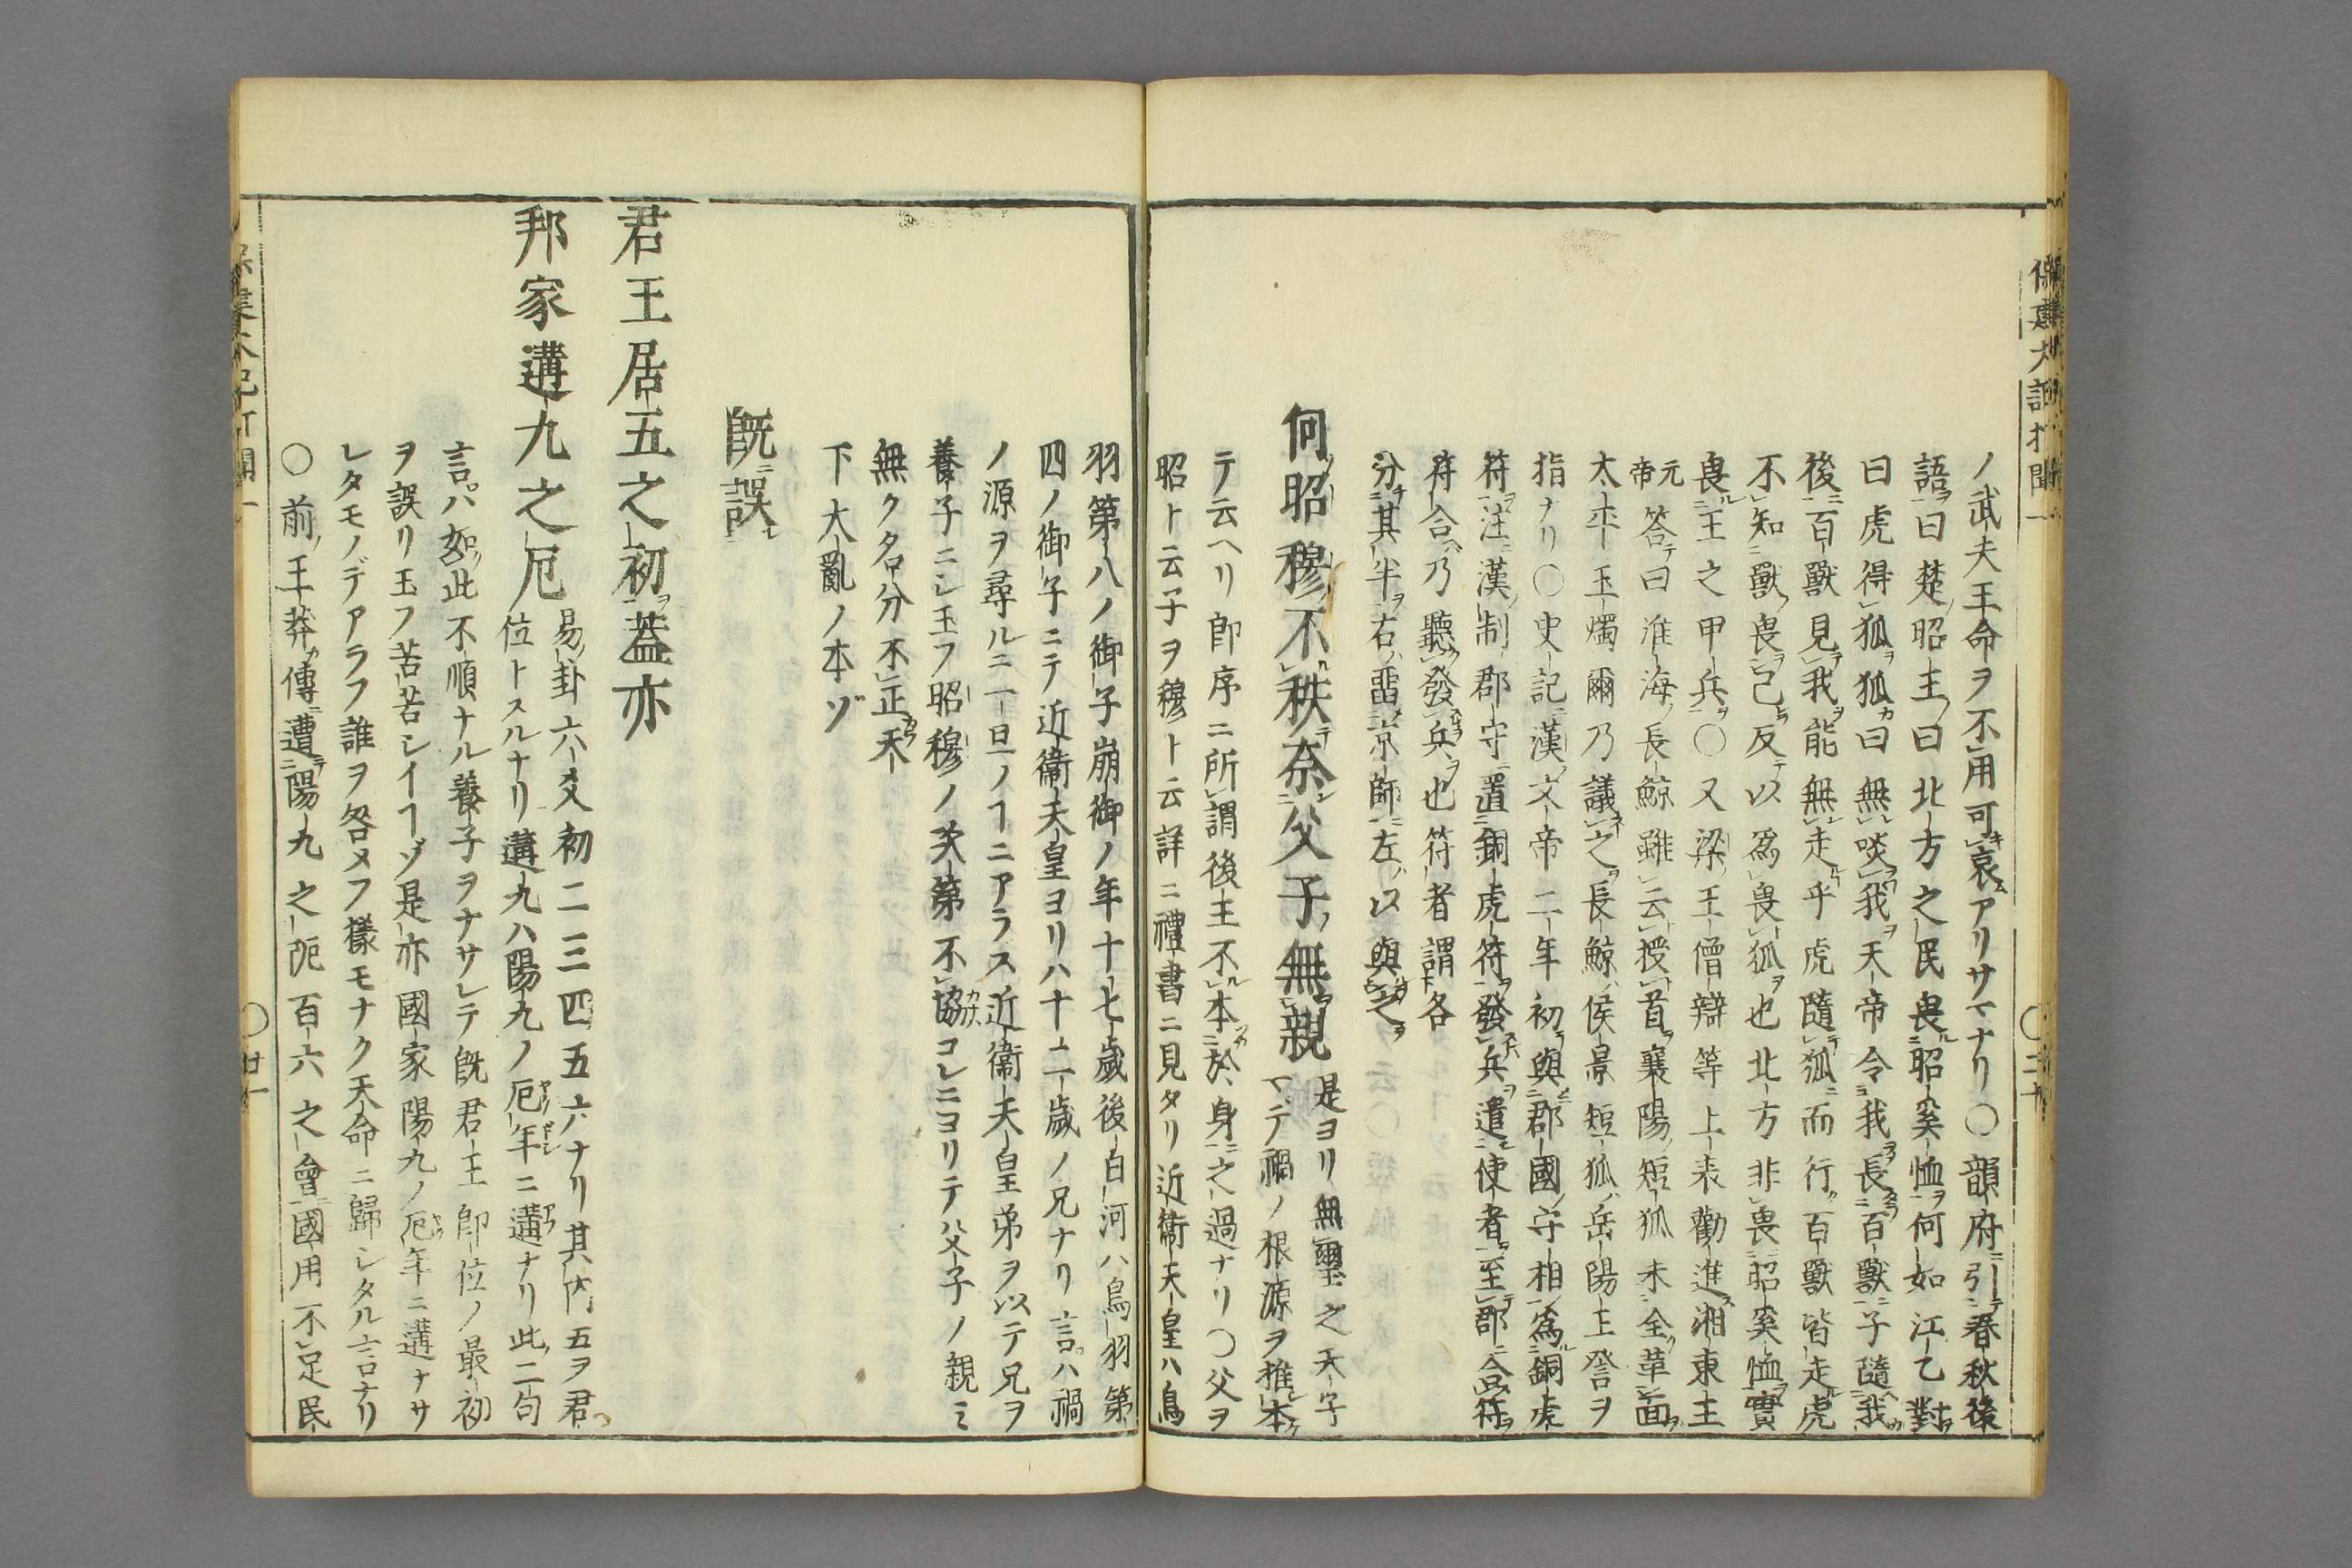 ノ武夫王命ヲ不用可哀アリサマナリ○韻府引春秋後
語曰楚昭王曰北方之民畏昭奚恤何如江乙對
曰虎得狐狐曰無啖我天帝令我長百獸子隨我
後百獸見我能無走乎虎隨狐而行百獸皆走虎
不知獸畏己反以爲畏狐也北方非畏昭奚恤實
畏王之甲兵○又梁王僧辯等上表勸進湘東王
元帝答曰淮海長鯨雖云授首襄陽短狐未全革面
太平玉燭爾乃議之長鯨侯景短狐岳陽王詧ヲ
指ナリ○史記漢文帝二年初與郡國守相爲銅虎
符注漢制郡守置銅虎符發兵遣使者至郡合符
符合乃聽發兵也符者謂各
分其半右畱京師左以與之
何昭穆不秩奈父子無親是ヨリ無璽之天子
マデ禍ノ根源ヲ推本
テ云ヘリ卽序ニ所謂後主不本於身之過ナリ○父ヲ
昭ト云子ヲ穆ト云詳ニ禮書ニ見タリ近衞天皇ハ鳥
羽第八ノ御子崩御ノ年十七歲後白河ハ鳥羽第
四ノ御子ニテ近衞天皇ヨリハ十二歲ノ兄ナリ言ハ禍
ノ源ヲ尋ルニ一旦ノヿニアラス近衞天皇弟ヲ以テ兄ヲ
養子ニシ玉フ昭穆ノ次第不協コレニヨリテ父子ノ親ミ
無ク名分不正天
下大亂ノ本ゾ
旣誤
君王居五之初蓋亦
邦家遘九之厄易卦六爻初二三四五六ナリ其內五ヲ君
位トスルナリ遘九ハ陽九ノ厄年ニ遘ナリ此二句
言ハ如此不順ナル養子ヲナサレテ旣君王卽位ノ最初
ヲ誤リ玉フ苦苦シイヿゾ是亦國家陽九ノ厄年ニ遘ナサ
レタモノデアラフ誰ヲ咎メフ樣モナク天命ニ歸シタル言ナリ
○前王莽傳遭陽九之阨百六之會國用不足民